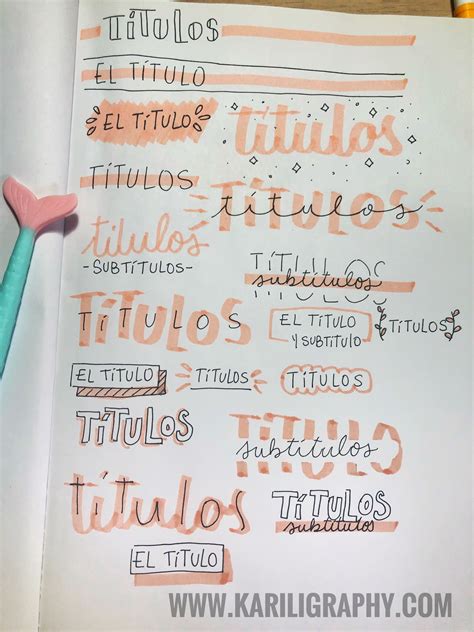 TÍTULOS
EL TÍTULO
EL TÍTULO
títulos
TÍTULOS
títulos
títulos
títulos
-SUBTÍTULOS-
TÍTULOS
subtítulos
TÍTULOS
TÍTULOS
EL TÍTULO
Y SUBTITULO
TÍTULOS
EL TÍTULO
TÍTULOS
TÍTULOS
TÍTULOS
TÍTULO
subtítulos
títulos
títulos
TÍTULOS
subtítulos
EL TÍTULO
WWW.KARILIGRAPHY.COM